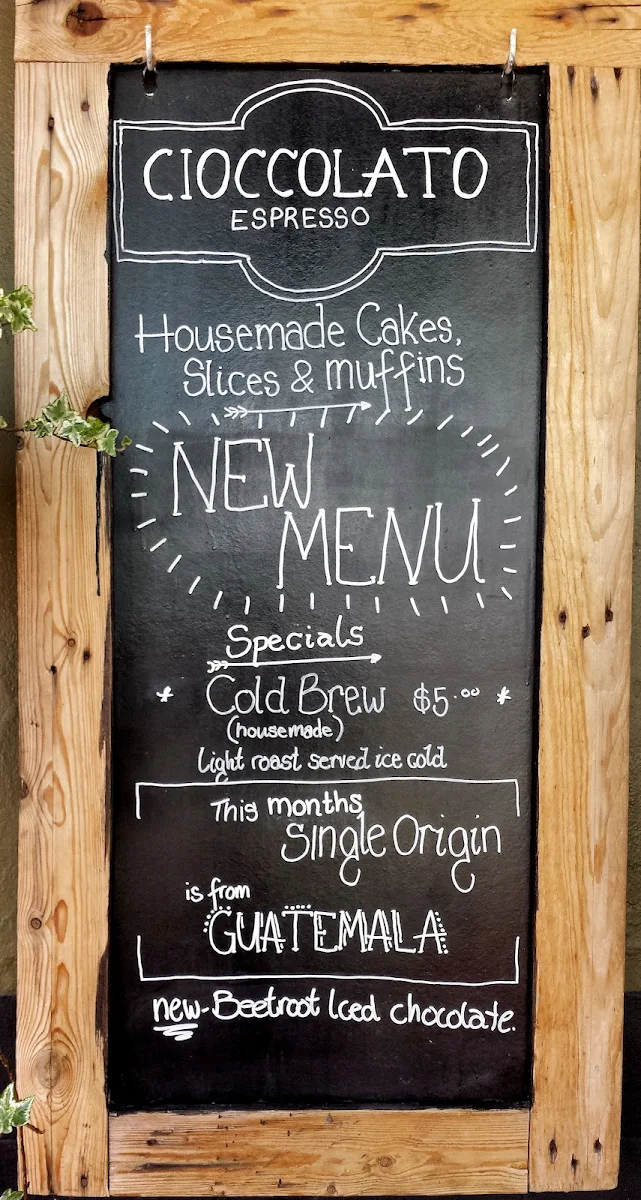 CIOCCOLATO
ESPRESSO
Housemade Cakes,
Slices & muffins
NEW
MENU
Specials
* Cold Brew $5.00 *
(housemade)
Light roast served ice cold
This months
Single Origin
is from
GUATEMALA
new-Beetroot Iced chocolate.